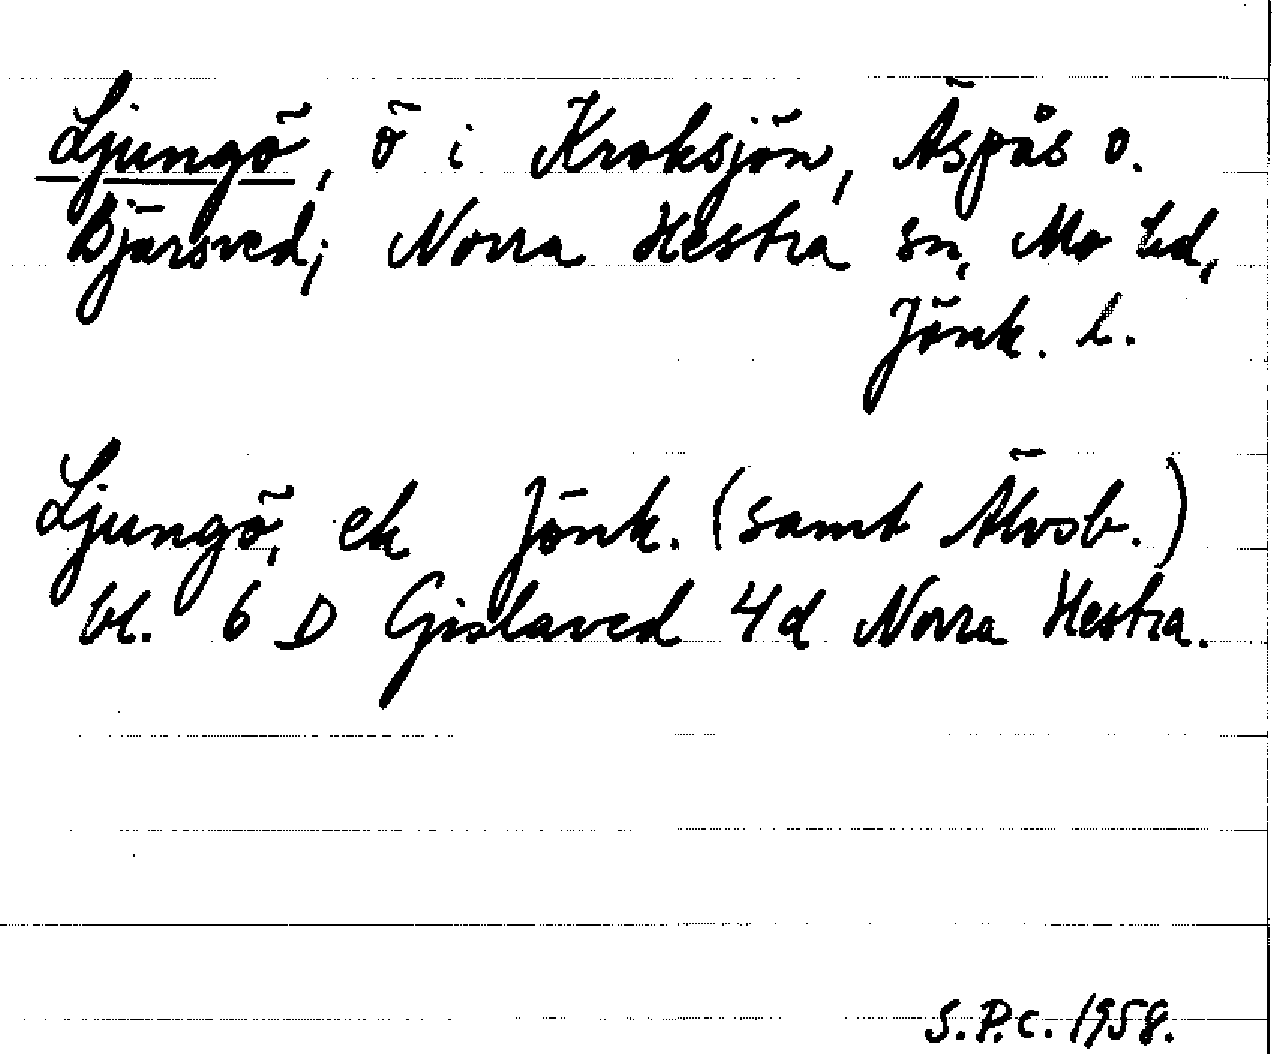 Ljungö, ö i Kroksjön, Äspås o.
Bjärsved; Norra Hestra sn, Mo hd,
Jönk. l.
Ljungö, ek Jönk. (samt Älvsb.)
bl. 6 D Gislaved 4d Norra Hestra.
S.P.c. 1958.